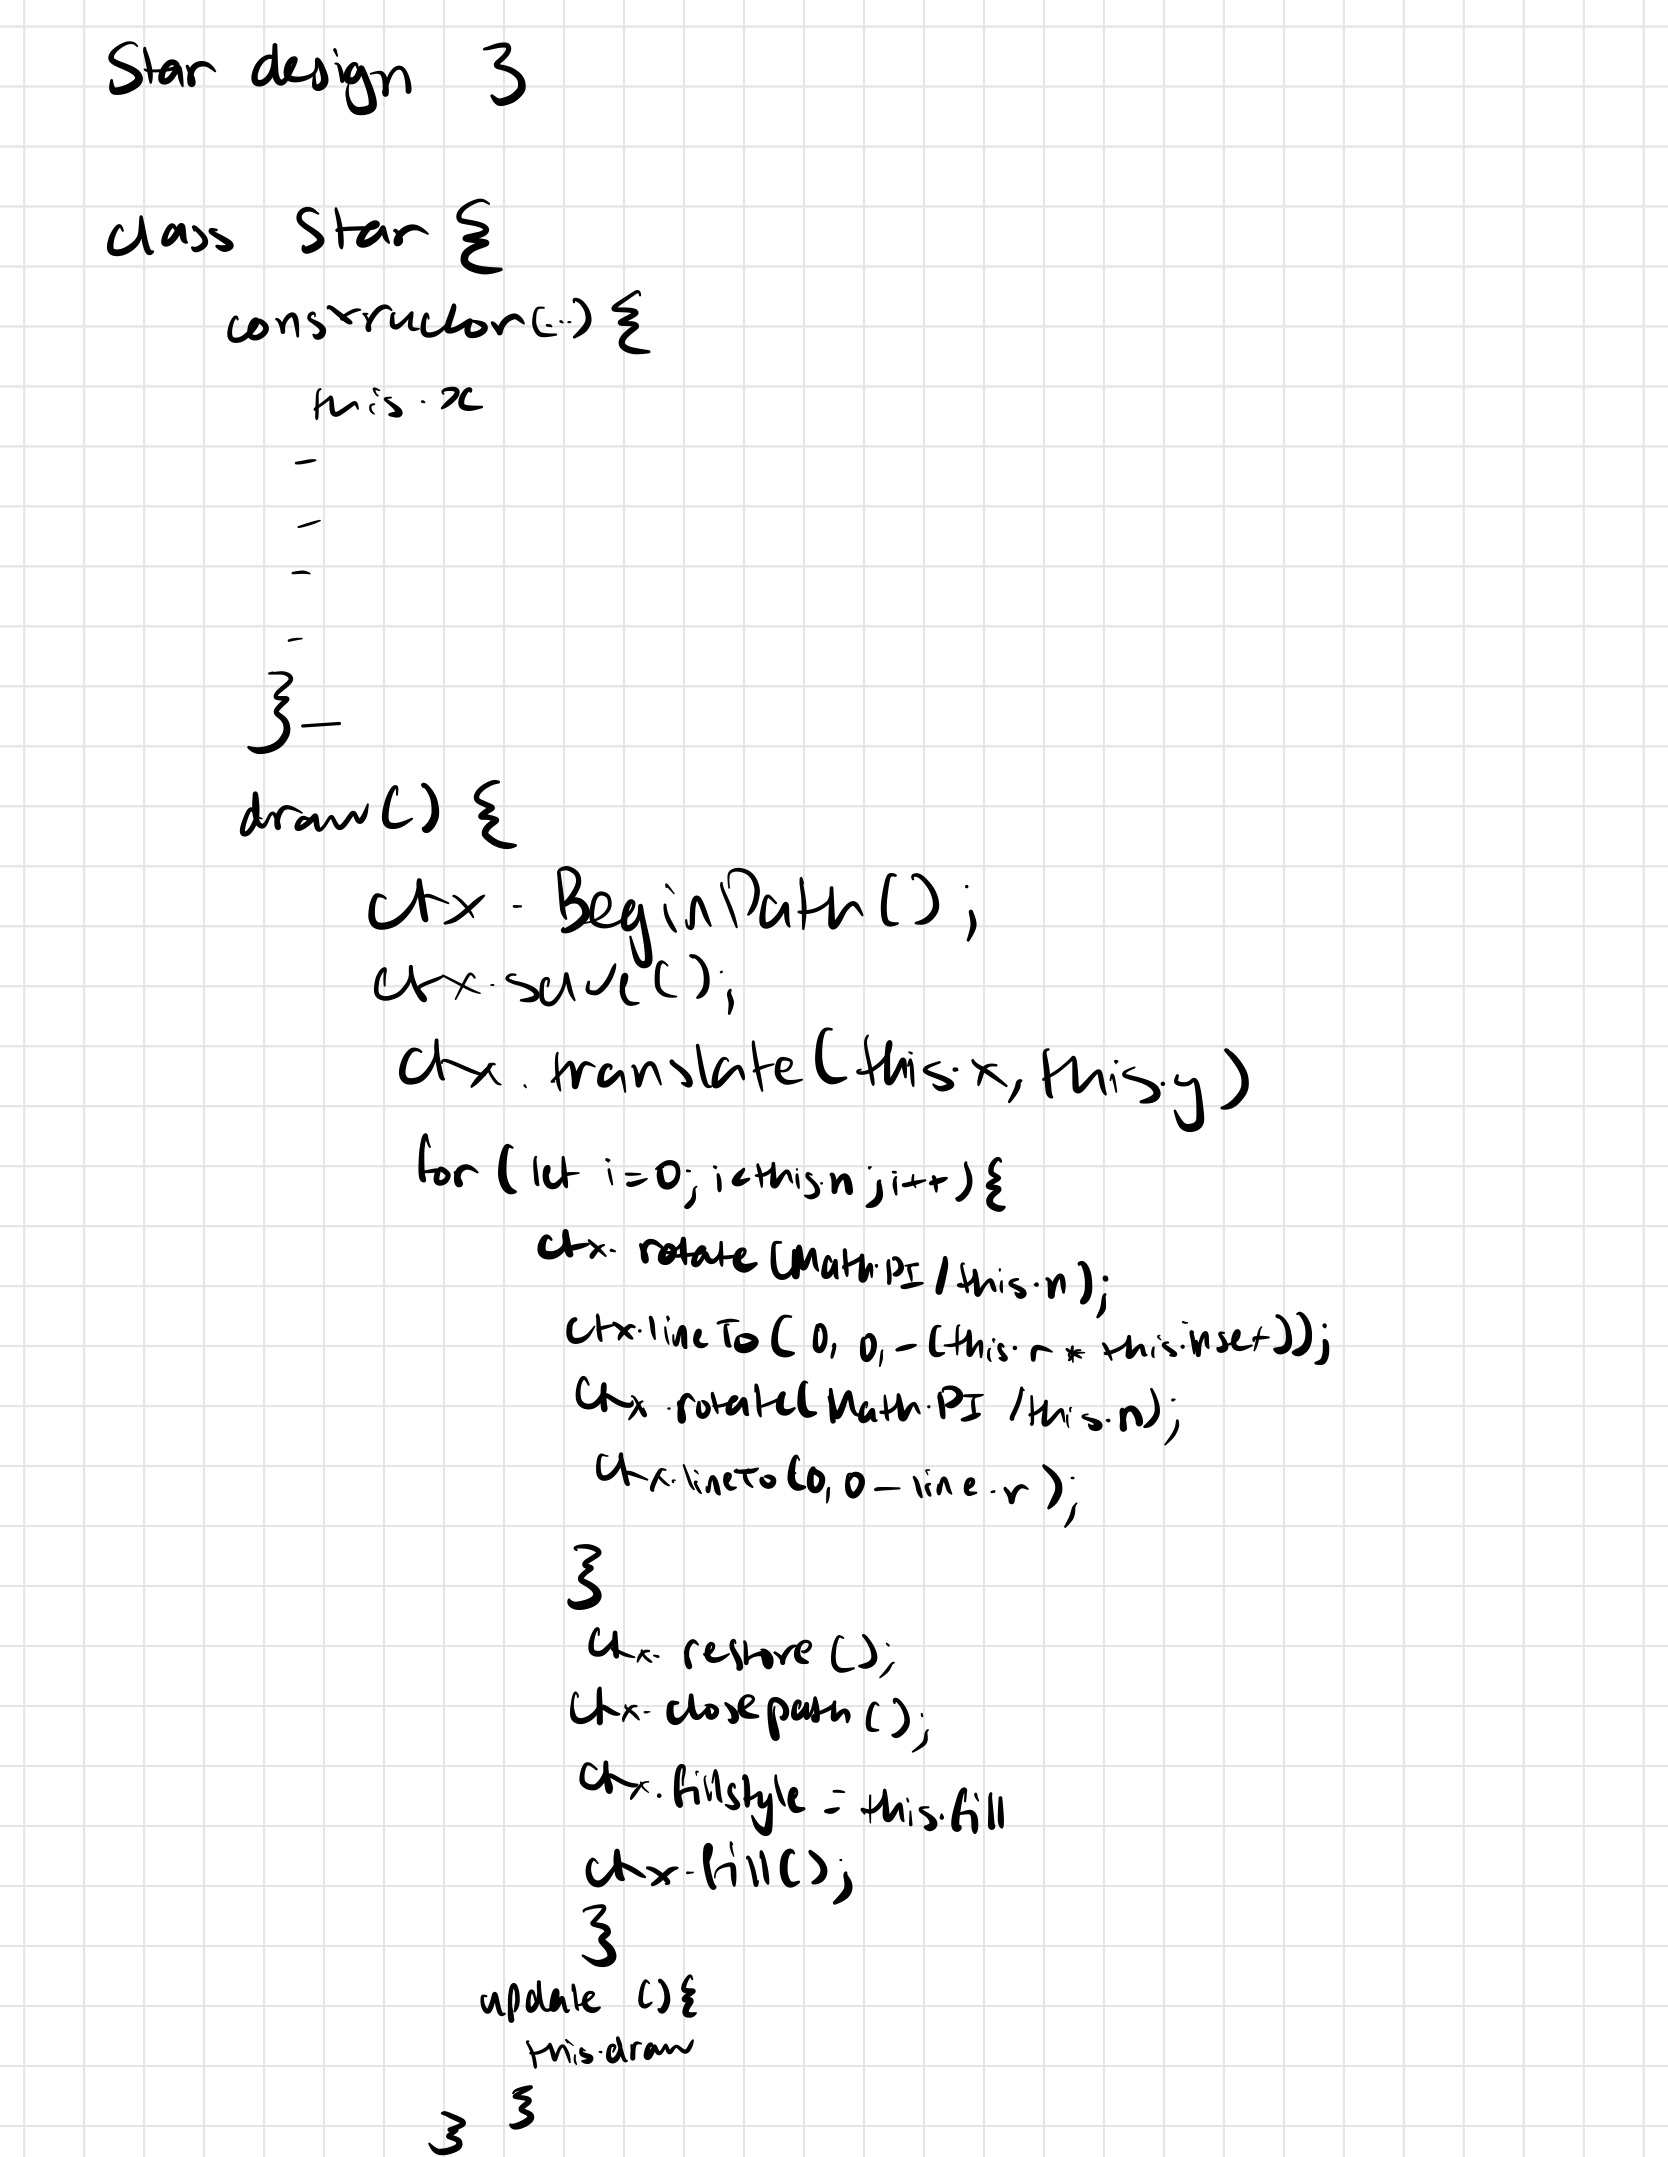 Star design 3
class Star {
constructor(...) {
this.x
-
-
-
-
} —
draw() {
ctx.BeginPath();
ctx.save();
ctx.translate(this.x, this.y)
for (let i=0; i<this.n; i++){
ctx.rotate(Math.PI/this.n);
ctx.lineTo(0, 0,-(this.r * this.inset));
ctx.rotate(Math.PI /this.n);
ctx.lineTo(0, 0-line.r);
}
ctx.restore();
ctx.closepath();
ctx.fillstyle = this.fill
ctx.fill();
}
update (){
this.draw
}
}